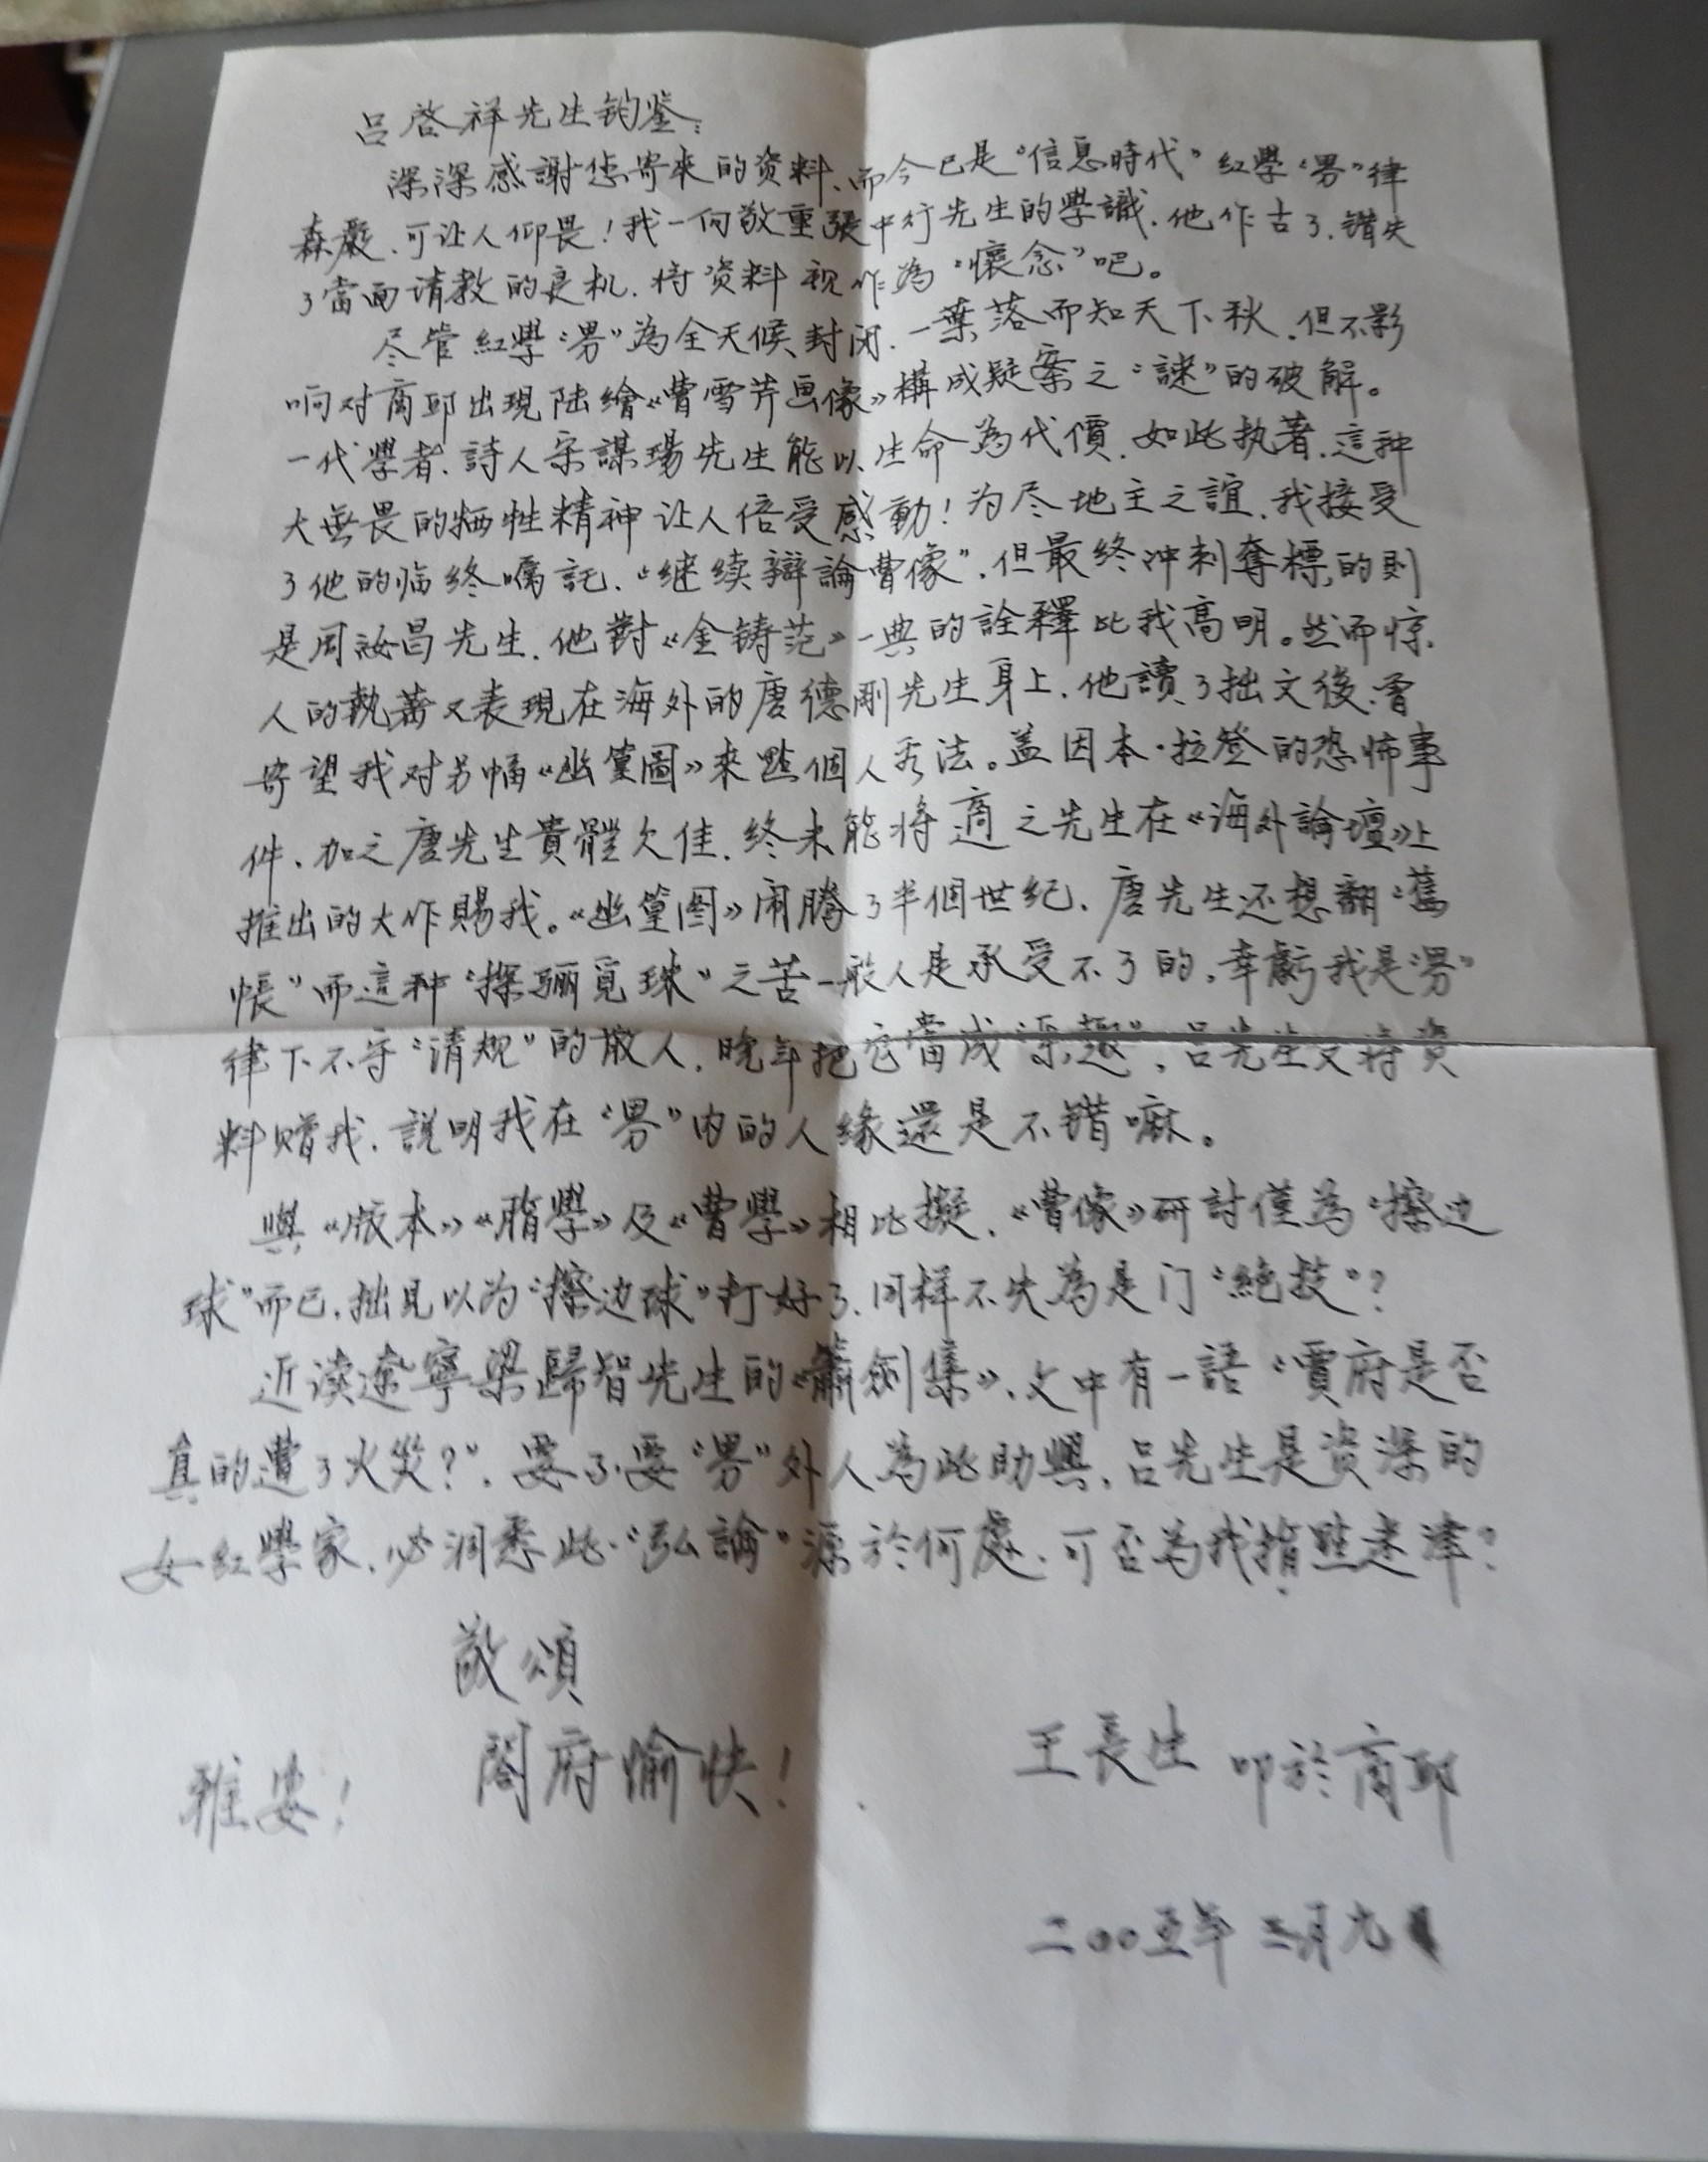 吕啓祥先生钧鉴：
深深感謝您寄來的资料、而今已是“信息時代”紅學“界”律
森嚴、可让人仰畏！我一向敬重張中行先生的學識、他作古了、錯失
了當面请教的良机、将资料視作為“懷念”吧。
尽管紅學“界”為全天候封闭、一葉落而知天下秋、但不影
响对商邱出現陆繪《曹雪芹画像》構成疑案之“謎”的破解。
一代學者、詩人宋謀瑒先生能以生命為代價、如此执著、這种
大無畏的牺牲精神让人倍受感動！为尽地主之誼、我接受
了他的临终囑託、“继续辯論曹像”、但最终冲刺奪標的則
是周汝昌先生、他對《金铸范》一典的詮釋比我高明。然而惊
人的執著又表現在海外的唐德剛先生身上、他讀了拙文後、曾
寄望我对另幅《幽篁圖》來點個人看法。盖因本·拉登的恐怖事
件、加之唐先生貴體欠佳、终未能将適之先生在《海外論壇》上
推出的大作賜我。《幽篁图》闹腾了半個世纪、唐先生还想翻“舊
帳”而這种“探骊覓珠”之苦一般人是承受不了的、幸虧我是“界”
律下不守“清规”的散人、晚年把它當成樂趣”、吕先生又将資
料赠我、説明我在“界”内的人缘還是不错嘛。
與《版本》《脂學》及《曹學》相比擬、《曹像》研討僅為“擦边
球”而已、拙見以为“擦边球”打好了、同樣不失為是门“絶技”？
近读遼寧梁歸智先生的《簫劍集》、文中有一語“賈府是否
真的遭了火災？”、要不要“界”外人為此助興、吕先生是資深的
女紅學家、必洞悉此“弘論”源於何處、可否為我指點迷津？
敬頌
雅安！ 閤府愉快！ 王長生 叩於商邱
二〇〇五年 月九日